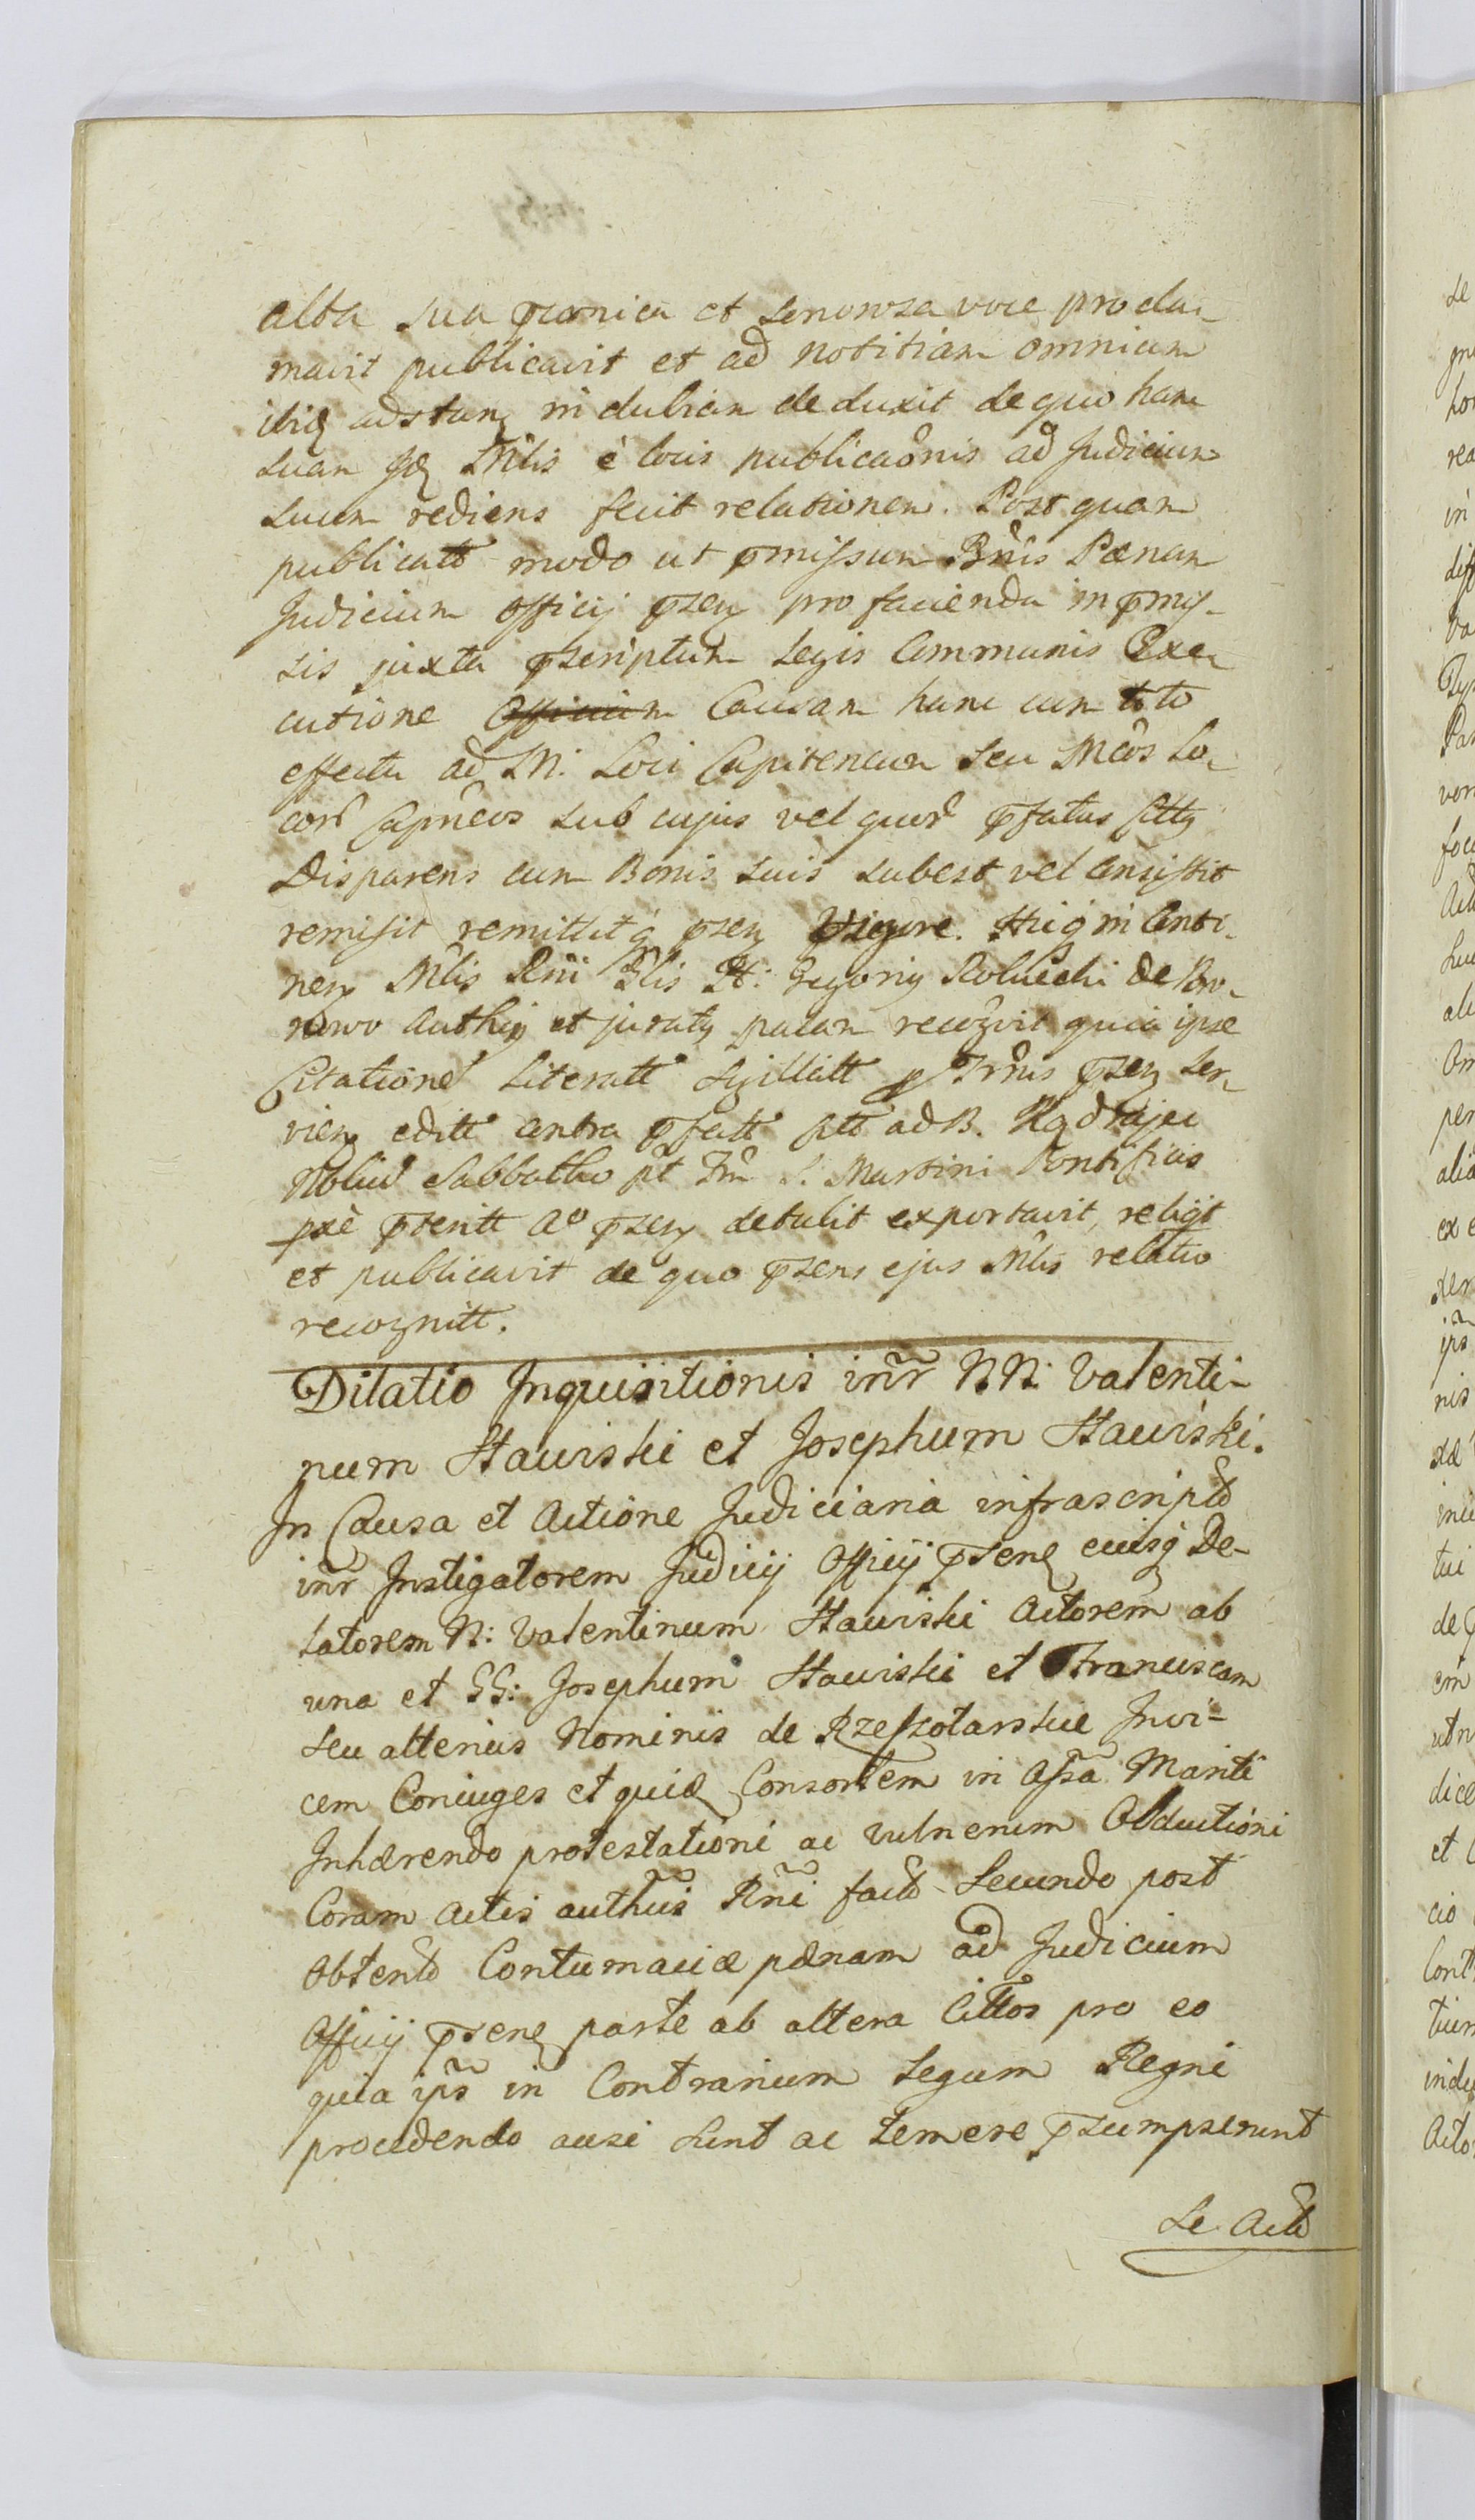 alta sua praeonica et sonorosa voce procla-
mavit publicavit et ad notitiam omnium
ibiq adstanq indubian deduxit de quo hanc
suam Idq Mlis è locis publicaonis ad Judicium
suum rediens fecit relationem. Post quam
publicatt modo ut pmissum Bnis Pænam
Judicium officij psenq pro facienda in pmis-
sis juxta pscriptum Legis Communis Exe-
cutione Officium Causam hanc cum toto
effectu ad M. Loci Capitaneum seu Mcos Lo-
cor Capneos sub cujus vel quor pfatus Cttq
Disparens cum Bonis suis subest vel consistit
remisit remittitq psenq vigore. Hicq in Conti-
nenq Mlis Rni Glis Pt: Gregoriq Rolnecki de Bro-
nowo Authenq et juratq palam recogvit quia ipse
Citatione Literatt sigillatt p Trnis psenq ser-
vienq editt contra pfatt Ctt ad B.
Nbliu Sabbatho pt Fm S. Martini Pontificis
pxè pteritt Ao psenq detulit exportavit, reliqit
et publicavit de quo psens ejus Mlis relatio
recognitt.
Dilatio Inquisitionis intr NN: Valenti-
num Stawiski et Josephum Stawiski.
In Causa et Actione Judiciaria infrascript
intr Instigatorem Judicij Officij psenq eiusq De-
latorem N: Valentinum Stawiski Actorem ab
una et GG: Josephum Stawiski et Franciscam
seu alterius Nominis de Rzeszotarskie Invi-
cem Coniuges et quidq Consortem in Assa Mariti
Inhærendo protestationi ac vulnerum Obductioni
Coram Actis authcis Rni fact Secundo post
Obtent Contumaciæ pænam ad Judicium
Officij psenq parte ab altera Cittos pro eo
quia ips in Contrarium Legum Regni
procedendo ausi sunt ac temere psumpserunt
Se Act